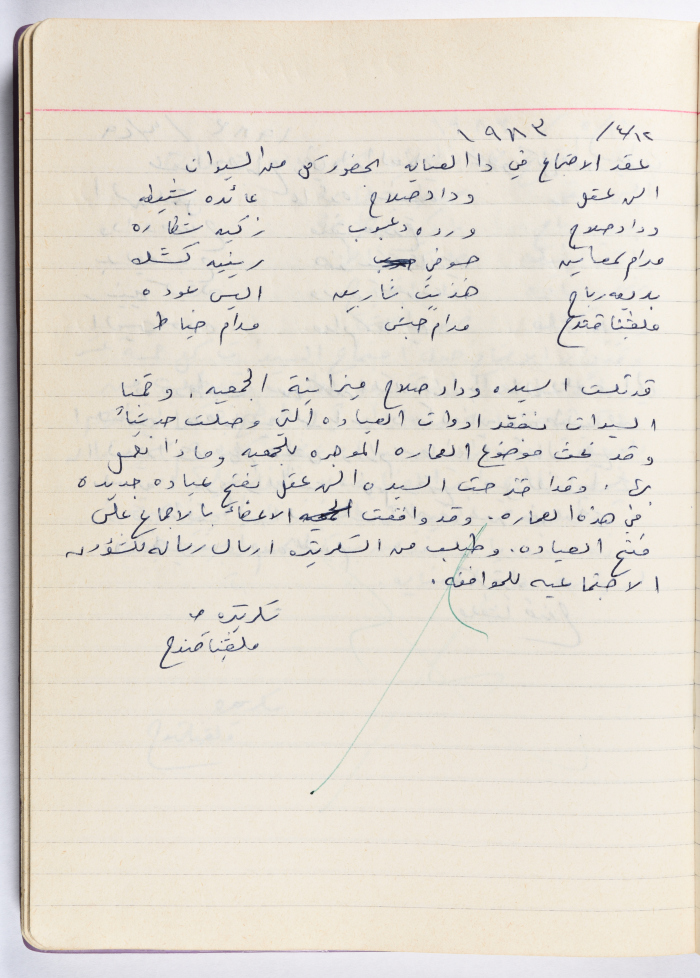 ١٢/٤/ ١٩٨٣
عقد الاجتماع في دا العنايه الحضور كل من السيدات
الن عقل وداد صلاح عائده بشيطه
وداد صلاح ورده دعبوب زكيه شطاره
مدام صوفي رينيه كشك
بديعه رباح اليس عوده
ملفينا قندح مدام حبش مدام خياط
قد تلت السيده وداد صلاح ميزانية الجمعيه. وقمنا
السيدات نتفقد ادوات العياده التي وصلت حديثاً
وقد بحث موضوع العماره الموجره للجمعيه وماذا نعمل
بها. وقد اقترحت السيده الن عقل بفتح عياده جديده
في هذه العماره. وقد وافقت الاعضاء بالاجماع على
فتح العياده. وطلب من السكرتيره ارسال رساله للشؤون
الاجتماعيه للموافقه.
سكرتيره
ملفينا قندح